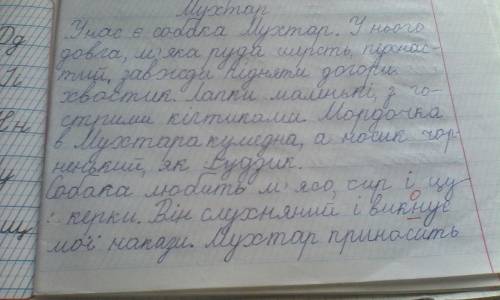 Мухтар
У нас є собака Мухтар. У нього
довга, м'яка руда шерсть, пухнас-
тий, завжди підняти догори
хвостик. Лапки маленькі, з го-
стрими кігтиками. Мордочка
в Мухтара кумедна, а носик чор-
ненький, як ґудзик.
Собака любить м'ясо, сир і цу-
керки. Він слухняний і викнує
мої накази. Мухтар приносить